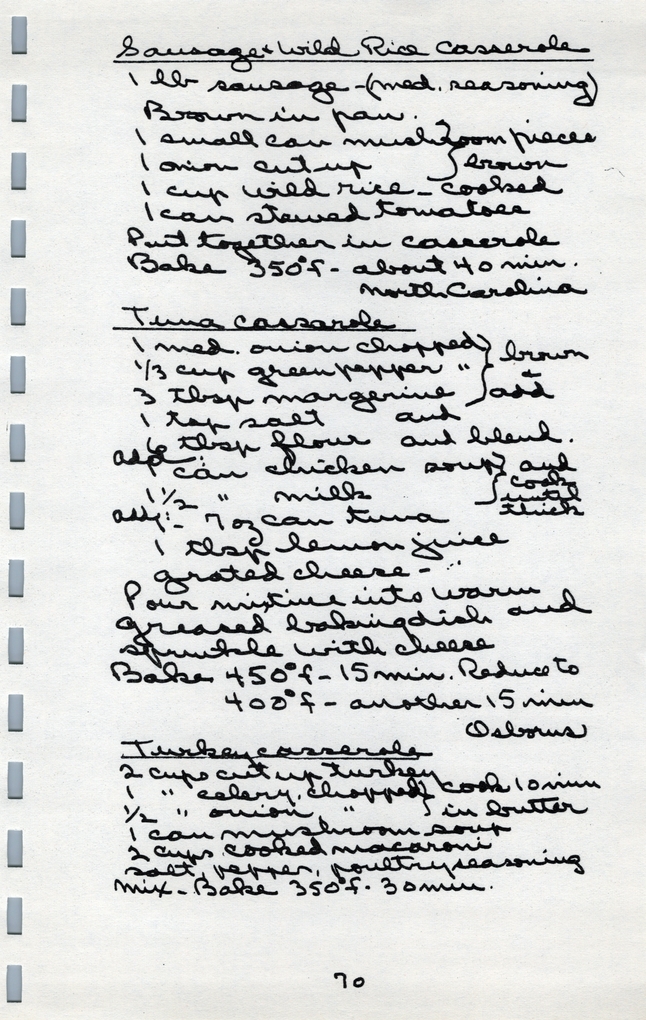 Sausage & Wild Rice Casserole
1 lb sausage - (med. seasoning)
Brown in pan.
1 small can mushroom pieces
1 onion cut up } brown
1 cup wild rice - cooked
1 can stewed tomatoes
Put together in casserole
Bake 350°f - about 40 min.
North Carolina
Tuna casserole
1 med. onion chopped } brown
1/3 cup green pepper " &
3 tbsp margerine } add
1 tsp salt and
6 tbsp flour and blend.
add can chicken soup } and
cook
1 1/2 " milk until
thick
add:- 7 oz can tuna
1 tbsp lemon juice
grated cheese -
Pour mixture into warm
greased baking dish and
sprinkle with cheese
Bake 450°f - 15 min. Reduce to
400°f - another 15 min
Osborns
Turkey casserole
2 cups cut up turkey
1 " celery, chopped } cook 10 min
1/2 " onion, " } in butter
1 can mushroom soup
2 cups cooked macaroni
salt, pepper, poultry seasoning
mix - Bake 350°f - 30 min.
70